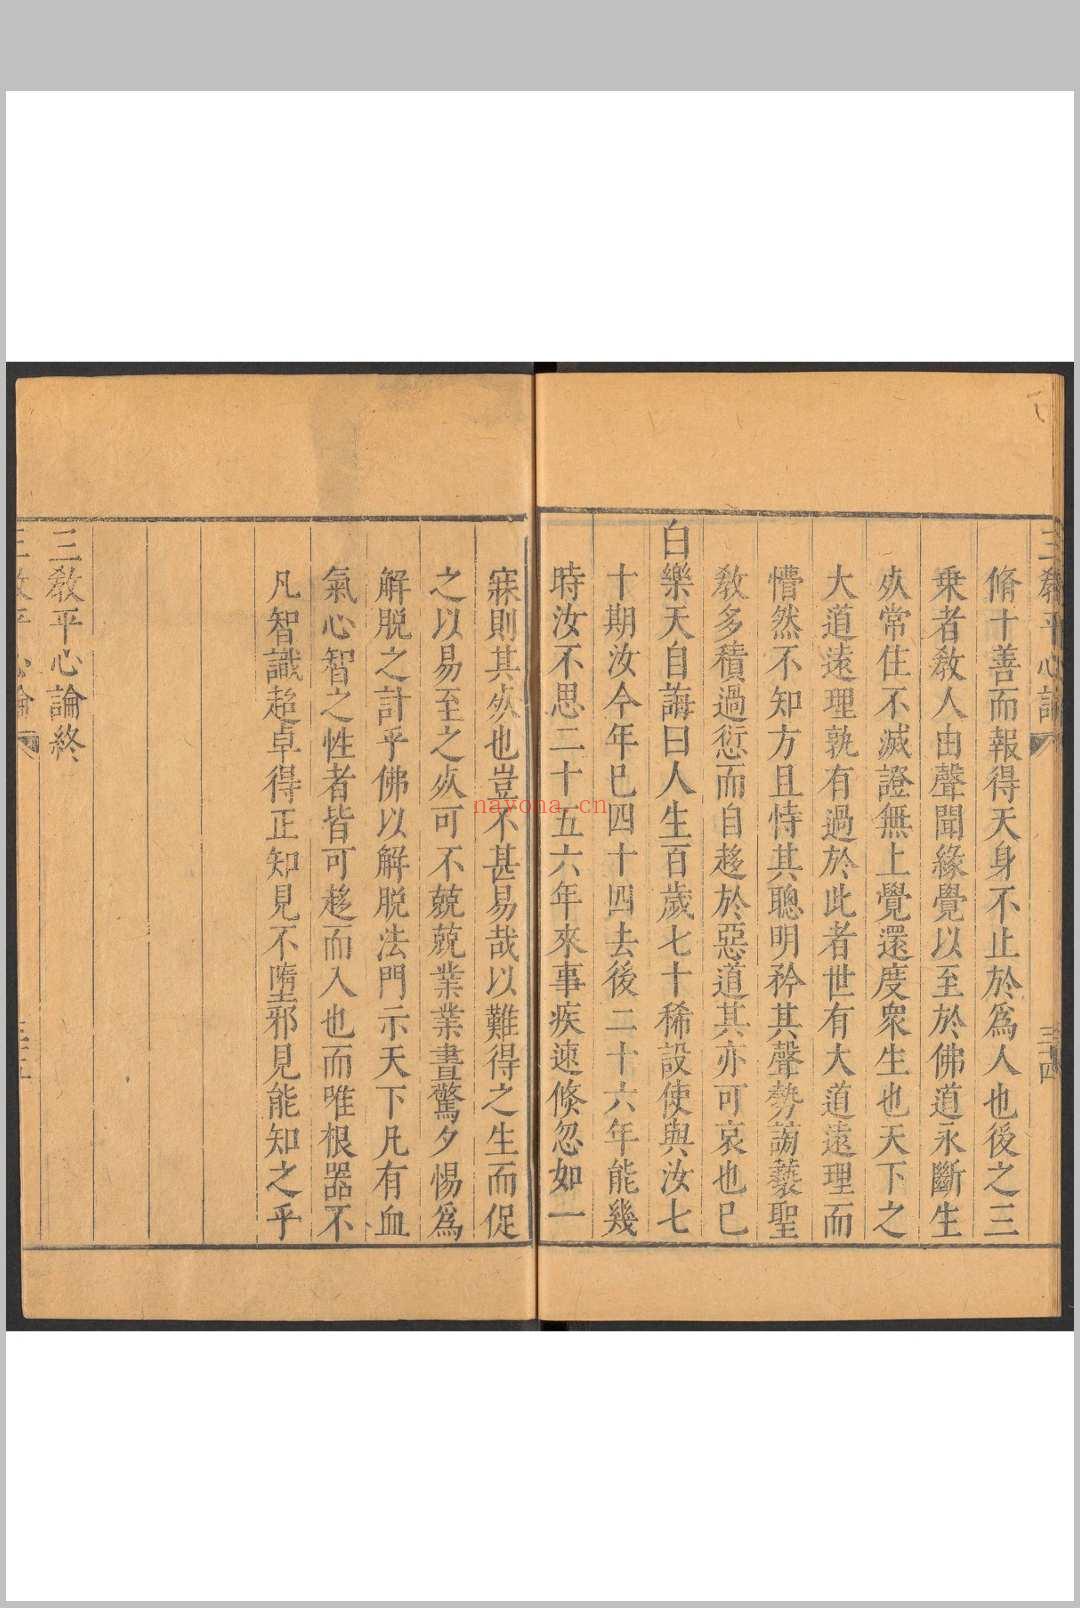 三教平心論
三十四
脩十善而報得天身不止於爲人也後之三
乗者敎人由聲聞緣覺以至於佛道永斷生
死常住不滅證無上覺還度衆生也天下之
大道遠理孰有過於此者世有大道遠理而
懵然不知方且恃其聰明矜其聲勢謗䙝聖
敎多積過愆而自趍於惡道其亦可哀也已
白樂天自誨曰人生百歲七十稀設使與汝七
十期汝今年已四十四去後二十六年能幾
時汝不思二十五六年來事疾速倐忽如一
寐則其死也豈不甚易哉以難得之生而促
之以易至之死可不兢兢業業晝驚夕惕爲
解脫之計乎佛以解脫法門示天下凡有血
氣心智之性者皆可趍而入也而唯根器不
凡智識超卓得正知見不墮邪見能知之乎
三敎平心論終
三敎平心論
nayona.cn